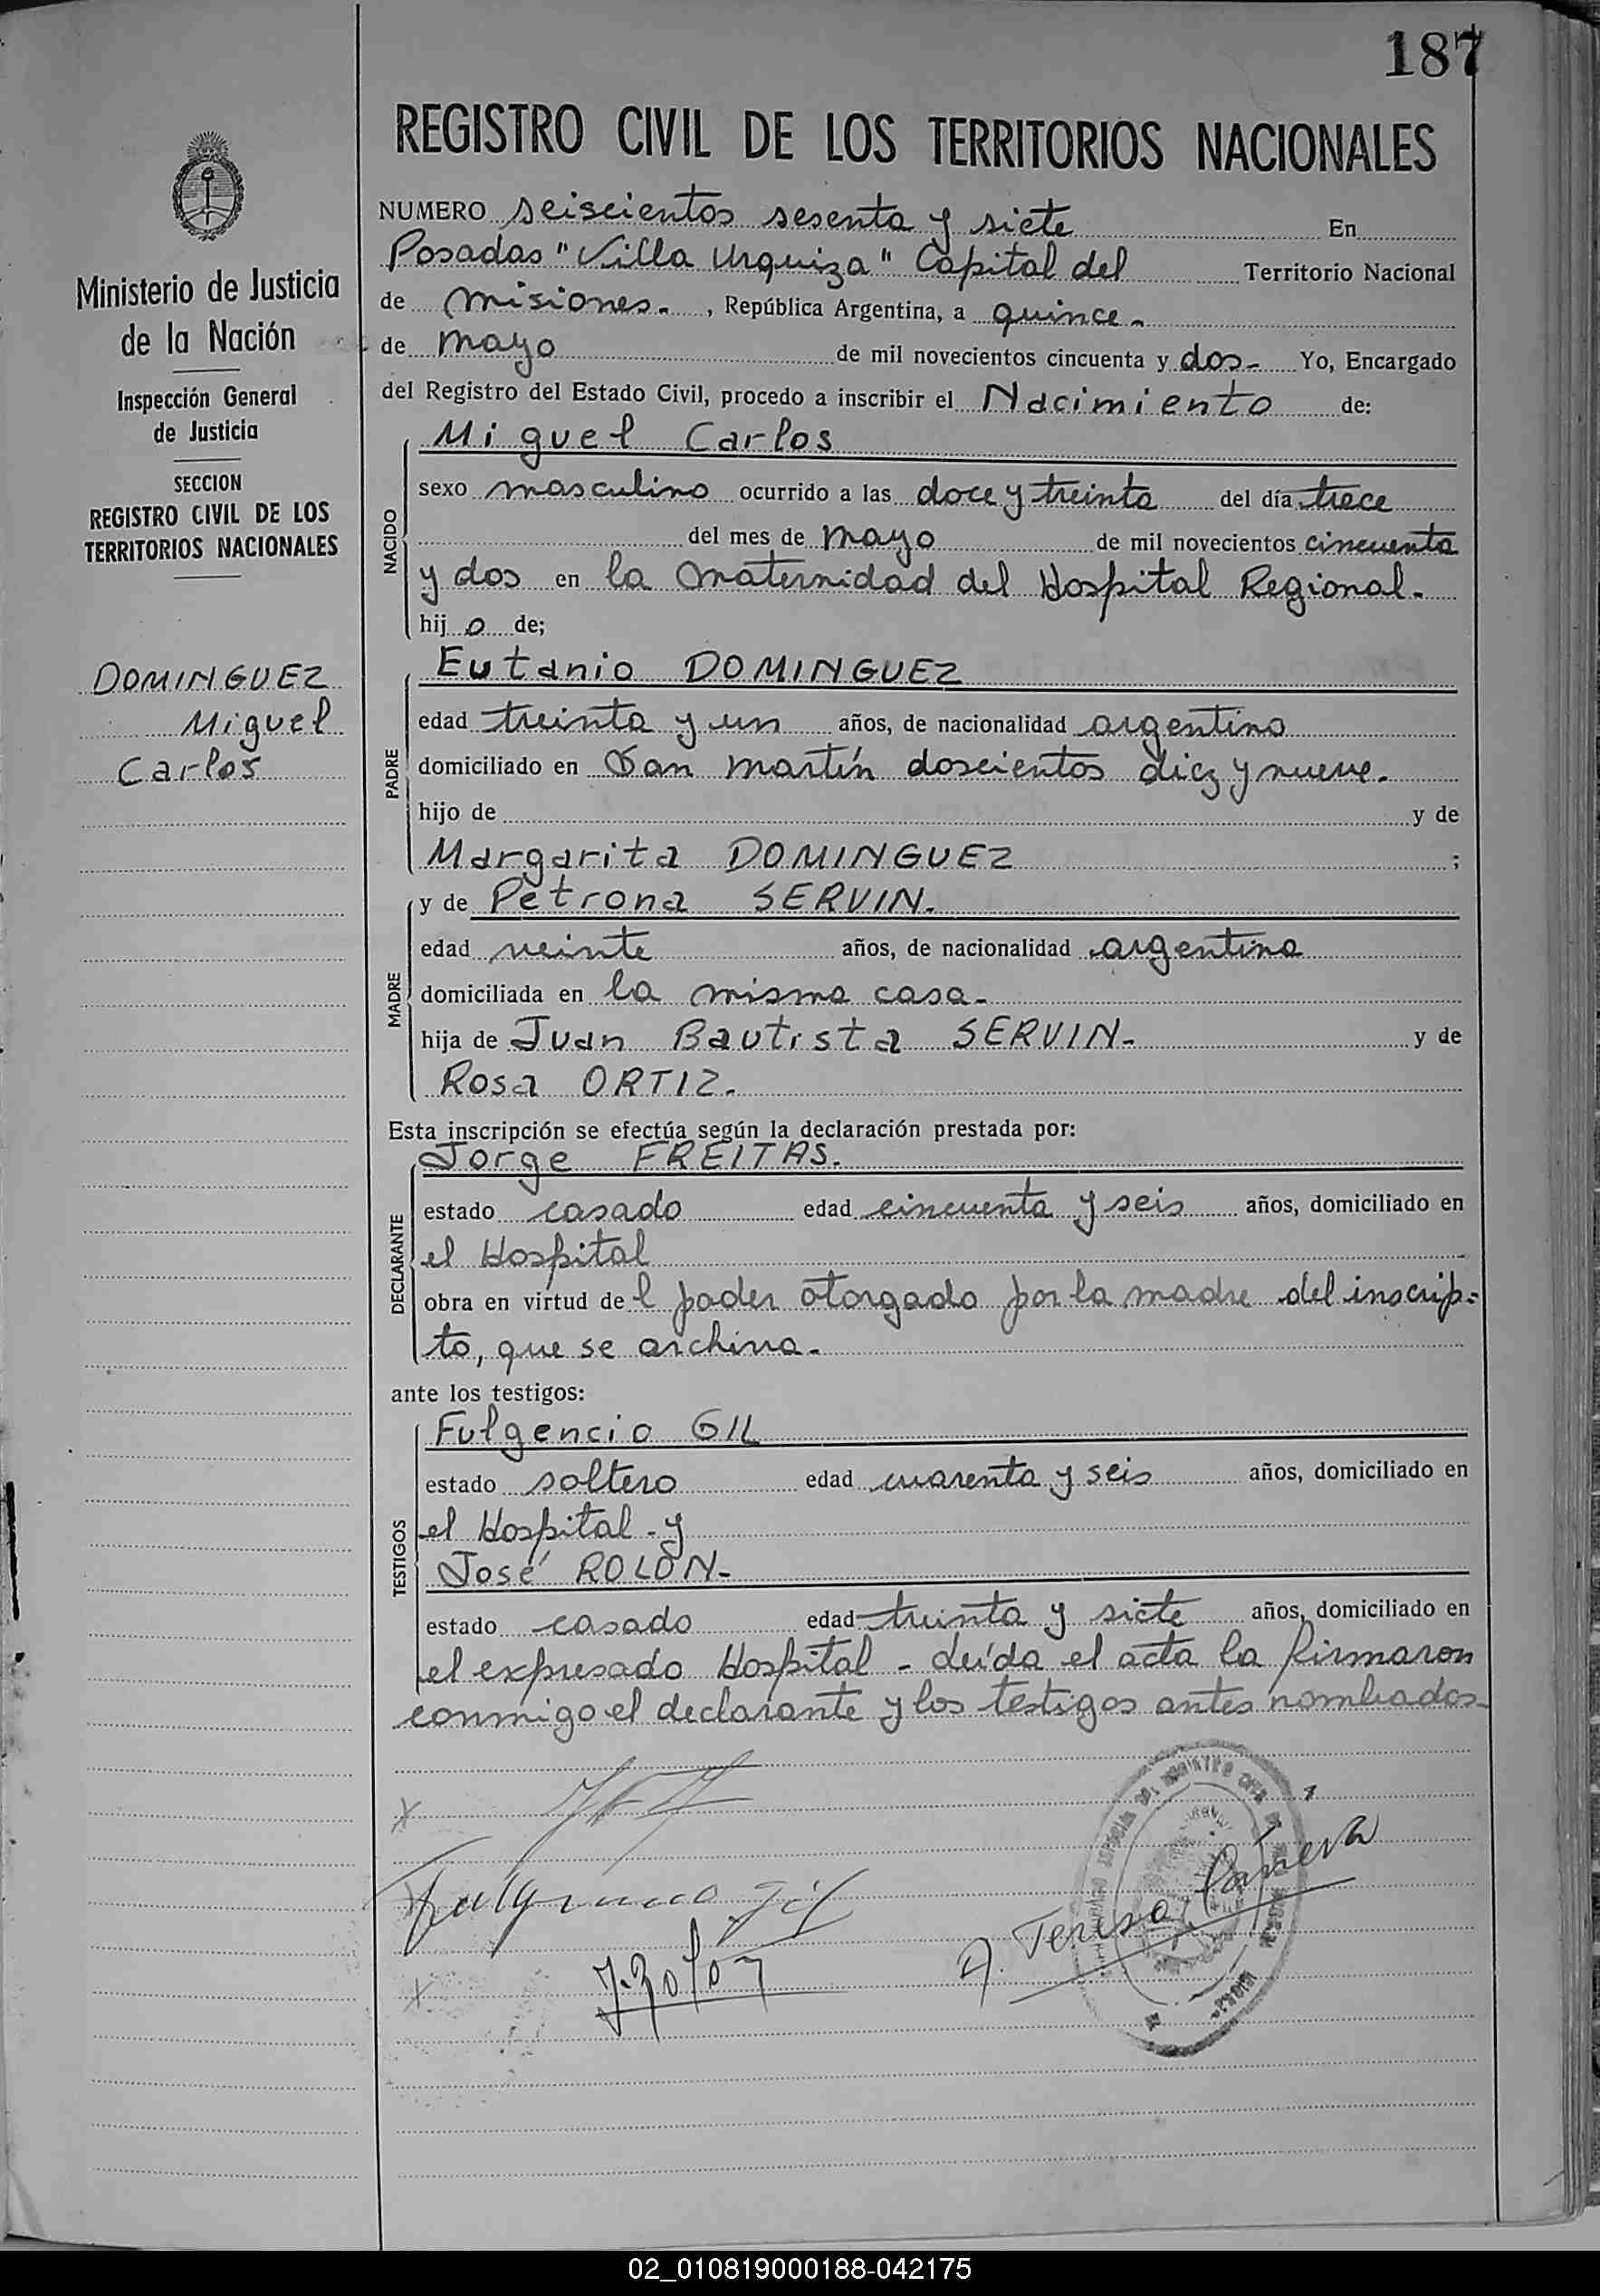 187
REGISTRO CIVIL DE LOS TERRITORIOS NACIONALES
Ministerio de Justicia
de la Nación
Inspección General
de Justicia
SECCION
REGISTRO CIVIL DE LOS
TERRITORIOS NACIONALES
DOMINGUEZ
Miguel
Carlos
NUMERO seiscientos sesenta y siete En
Posadas "Villa Urquiza" Capital del Territorio Nacional
de misiones. , República Argentina, a quince.
de mayo de mil novecientos cincuenta y dos- Yo, Encargado
del Registro del Estado Civil, procedo a inscribir el Nacimiento de:
NACIDO
Miguel Carlos
sexo masculino ocurrido a las doce y treinta del día trece
del mes de mayo de mil novecientos cincuenta
y dos en la maternidad del Hospital Regional.
hij o de;
PADRE
Eutanio DOMINGUEZ
edad treinta y un años, de nacionalidad argentino
domiciliado en San martín doscientos diez y nueve.
hijo de y de
Margarita DOMINGUEZ ;
MADRE
y de Petrona SERVIN.
edad veinte años, de nacionalidad argentina
domiciliada en la misma casa-
hija de Juan Bautista SERVIN- y de
Rosa ORTIZ.
Esta inscripción se efectúa según la declaración prestada por:
DECLARANTE
Jorge FREITAS.
estado casado edad cincuenta y seis años, domiciliado en
el Hospital
obra en virtud de l poder otorgado por la madre del inscrip=
to, que se archiva-
ante los testigos:
TESTIGOS
Fulgencio GIL
estado soltero edad cuarenta y seis años, domiciliado en
el Hospital - y
José ROLÓN-
estado casado edad treinta y siete años, domiciliado en
el expresado Hospital - Leída el acta la firmaron
conmigo el declarante y los testigos antes nombrados-
02_010819000188-042175